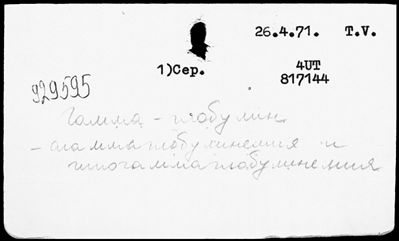 26.4.71. T.V.
1)Сер. 4UT
817144
929595
Гамма - глобулин
- агаммаглобулинемия и
гипогаммаглобулинемия